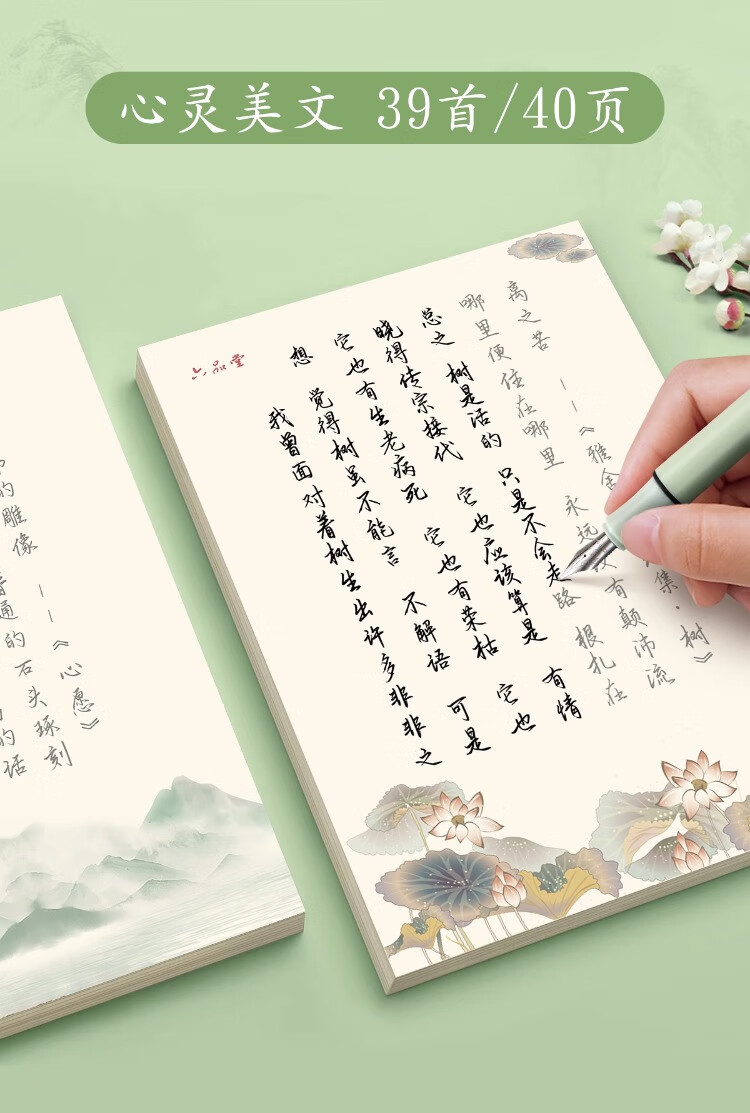 心灵美文 39首/40页
六品堂
我曾面对着树生出许多非非之
想 觉得树虽不能言 不解语 可是
它也有生老病死 它也有荣枯 它也
晓得传宗接代 它也应该算是 有情
总之 树是活的 只是不会走路 根扎在
哪里便住在哪里 永远没有颠沛流
离之苦 ——《雅舍集·树》
的话
普通的石头琢刻
的雕像 ——《心愿》